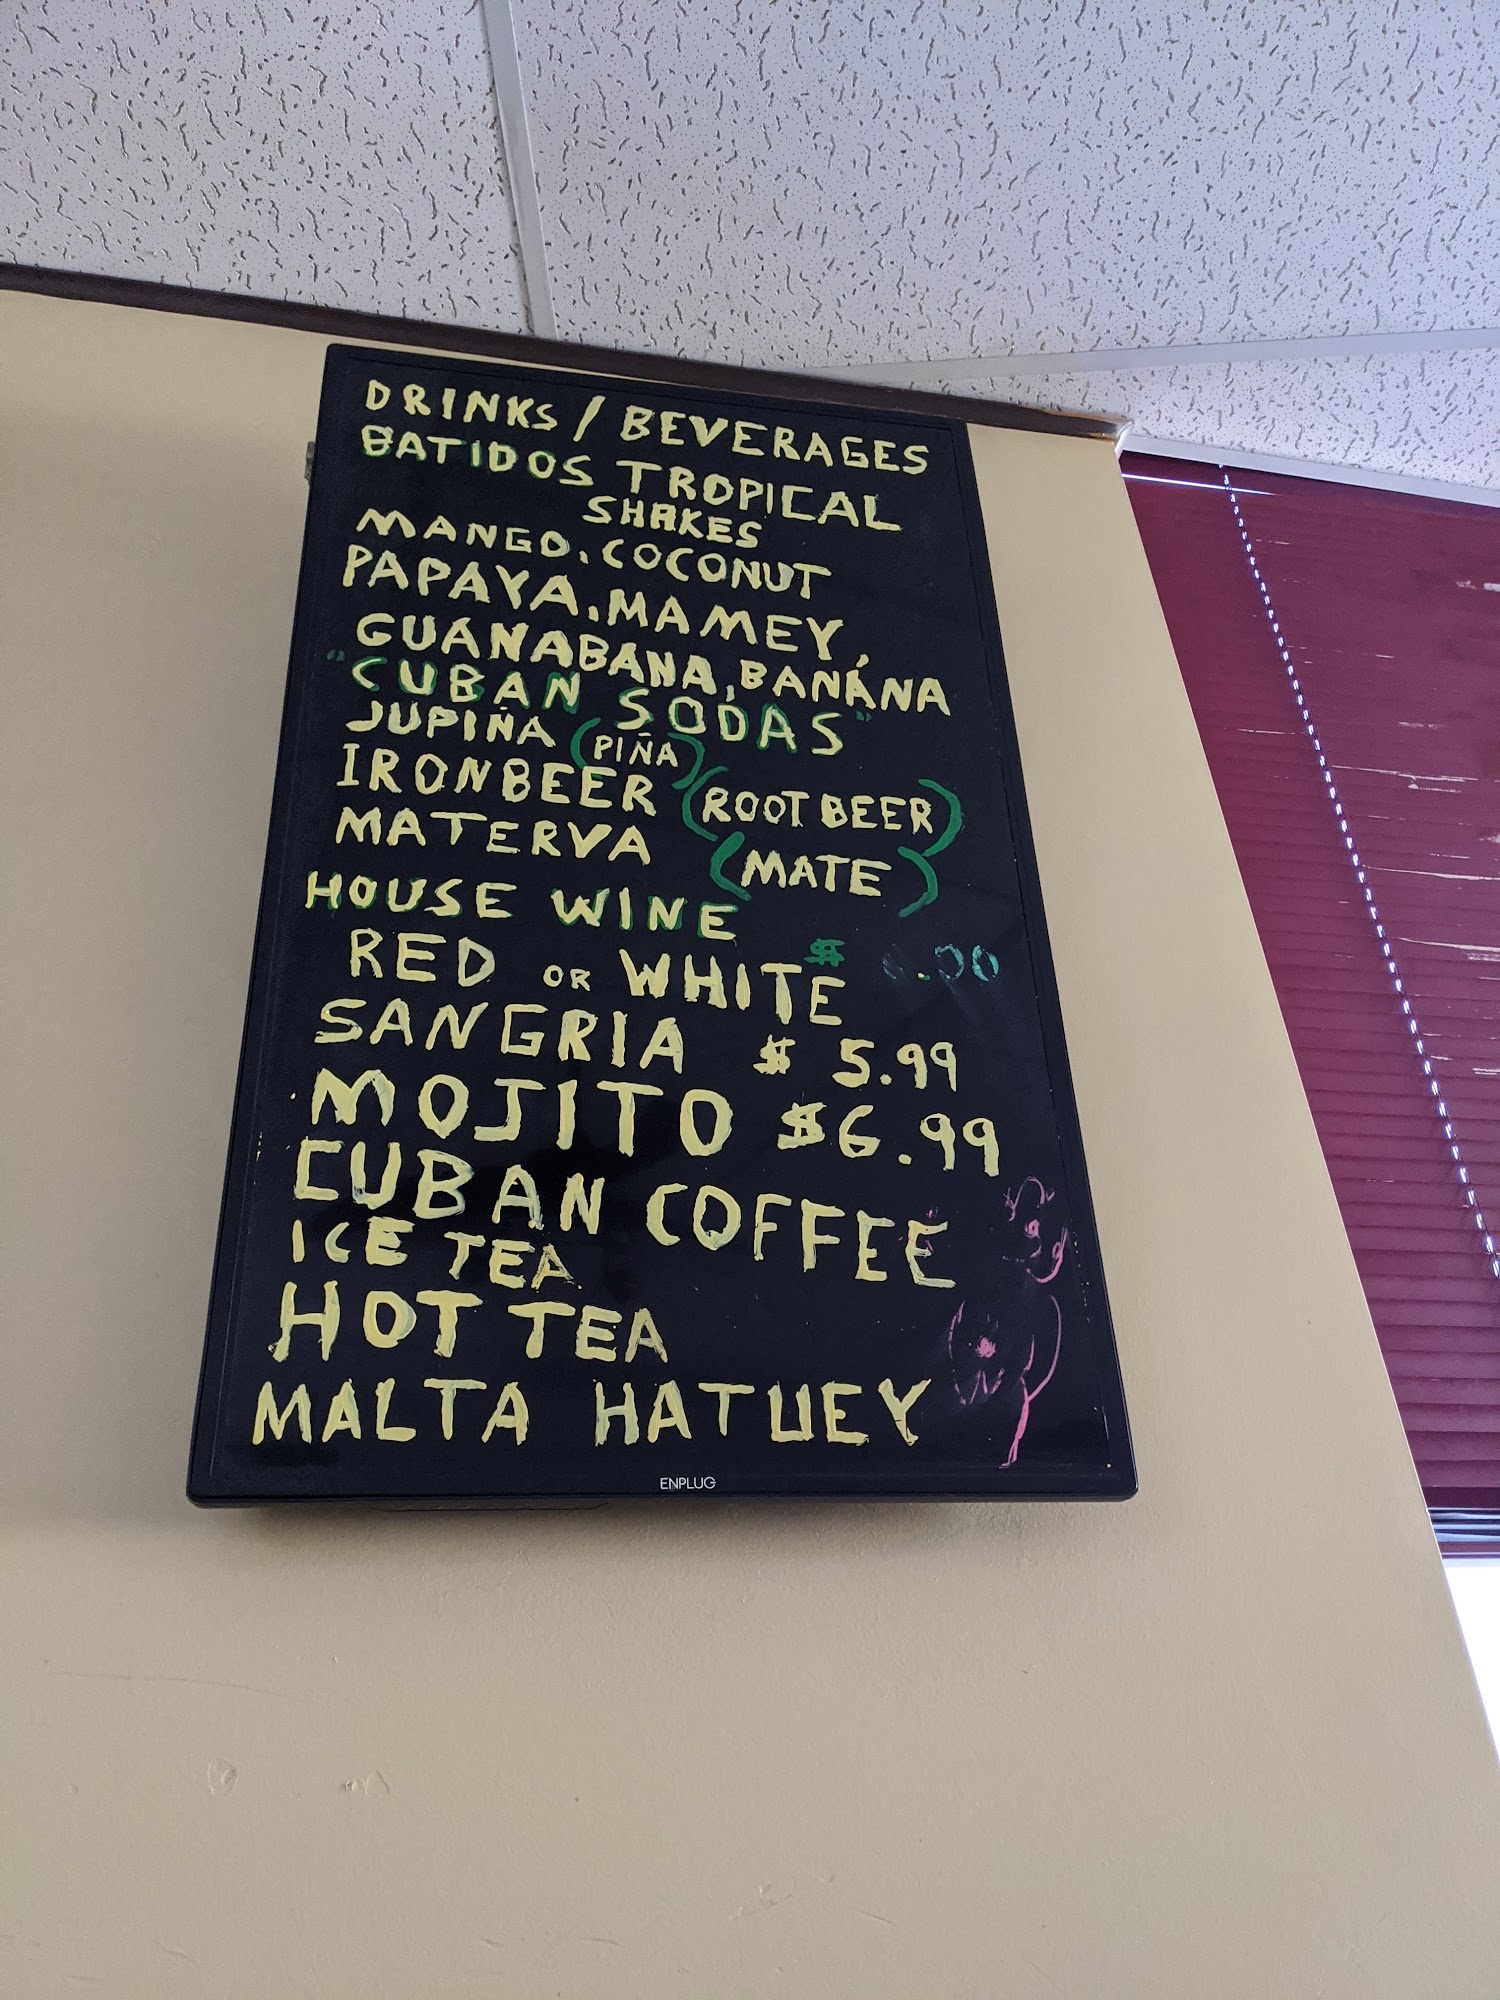 DRINKS / BEVERAGES
BATIDOS TROPICAL
SHAKES
MANGO, COCONUT
PAPAYA, MAMEY,
GUANABANA, BANANA
"CUBAN SODAS"
JUPIÑA (PIÑA)
IRONBEER (ROOT BEER)
MATERVA (MATE)
HOUSE WINE
RED OR WHITE $
SANGRIA $ 5.99
MOJITO $6.99
CUBAN COFFEE
ICE TEA
HOT TEA
MALTA HATUEY
ENPLUG